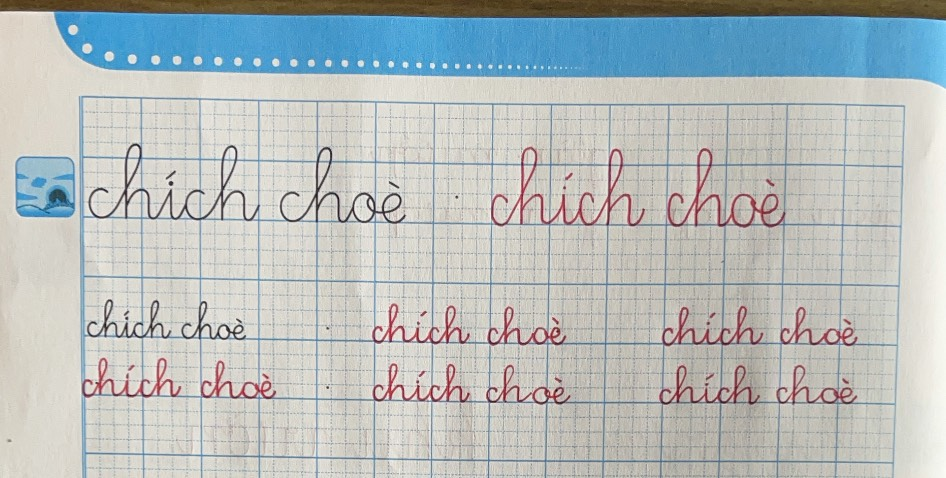 chích choè chích choè
chích choè chích choè chích choè
chích choè chích choè chích choè